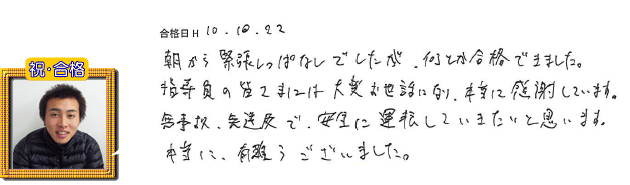 祝・合格
合格日 H 10.10.22
朝から緊張しっぱなしでしたが、何とか合格できました。
指導員の皆さまには大変お世話になり、本当に感謝しています。
無事故、無違反で、安全に運転していきたいと思います。
本当に、有難うございました。